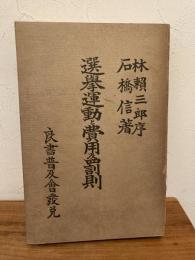 林賴三郎序
石橋信著
選擧運動と費用と罰則
良書普及會發兌